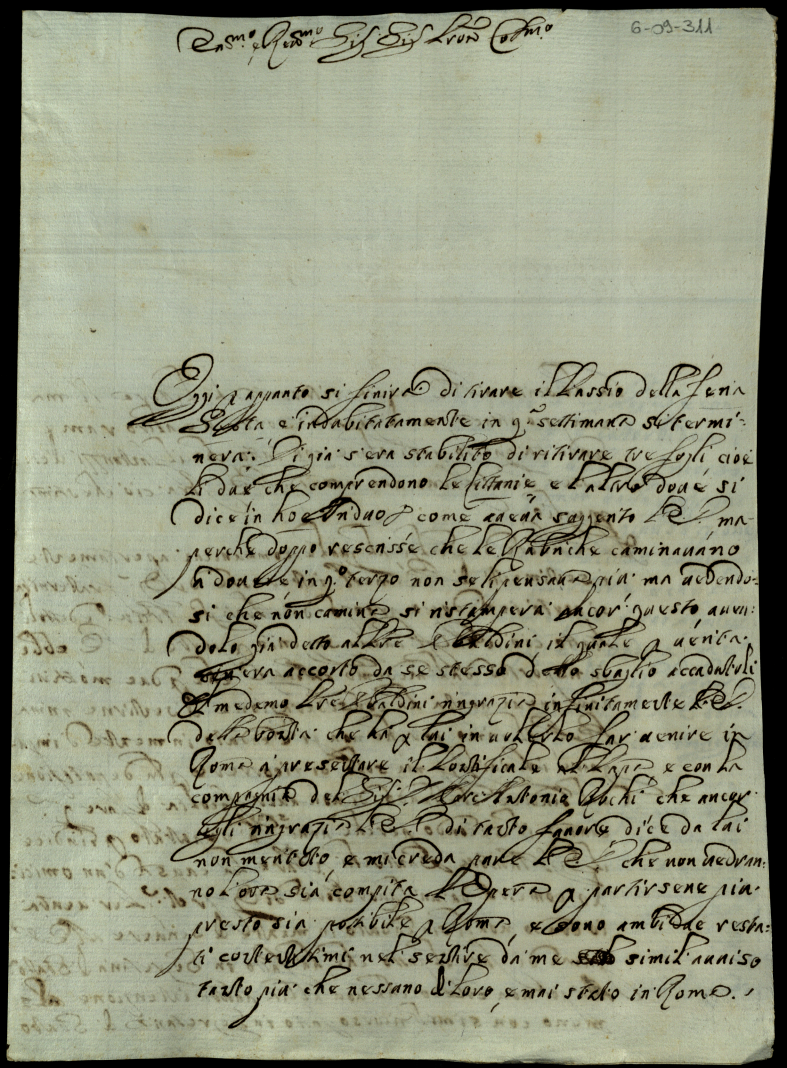 6-09-311
Ill.mo e Rev.mo Sig. Sig. Pron Col.mo
Oggi appunto si finirà di tirare il Passio della feria
Sesta e indubitatamente in q.a settimana si termi:
nerà. Di già s'era stabilito di ristirare tre fogli cioè
li due che comprendono le littanie e l'altro dove si
dice in hoc come aveva V.S. ma
perche doppo rescrisse che le Rubriche caminavano
a dovere in q.o terzo non se li pensava più ma vedendo:
si che non camina si ristamperà ancor questo aven:
dolo già detto al Baldini il quale p verità
s'era accorto da se stesso dello sbaglio accadutoli
Il medemo Baldini ringrazia infinitamente V.S.
della bontà che hà p lui in volerlo far venire in
Roma a presentare il Pontificale al Papa e con la
compagnia del Sig. Marc Antonio che ancor
egli ringrazia V.S. di tanto favore dice da lui
non meritato e mi creda pure V.S. che non vedran:
no l'ora sia compita l'Opera p partirsene più
presto sia possibile p Roma, e sono ambidue resta:
ti contentissimi nel sentire da me simil avviso
tanto più che nessuno di loro è mai stato in Roma.